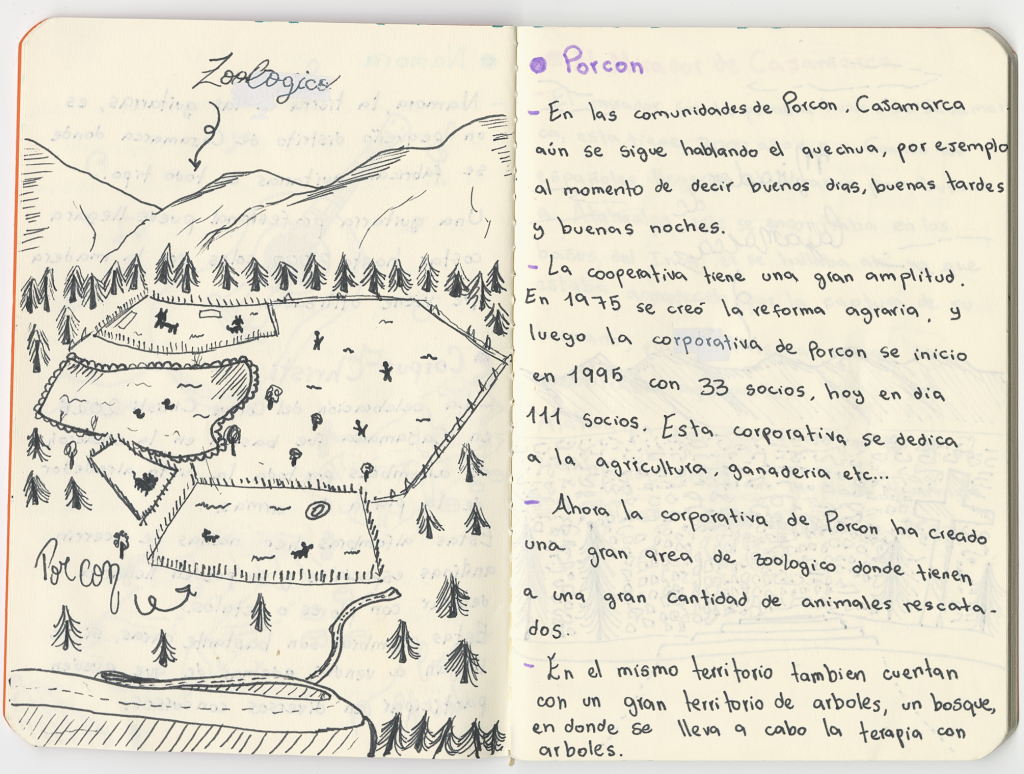 Zoologico
Porcon
Porcon
- En las comunidades de Porcon. Cajamarca
aún se sigue hablando el quechua, por ejemplo
al momento de decir buenos dias, buenas tardes
y buenas noches.
- La cooperativa tiene una gran amplitud.
En 1975 se creó la reforma agraria, y
luego la corporativa de Porcon se inicio
en 1995 con 33 socios, hoy en dia
111 socios. Esta corporativa se dedica
a la agricultura, ganaderia etc...
- Ahora la corporativa de Porcon ha creado
una gran area de zoologico donde tienen
a una gran cantidad de animales rescata-
dos.
- En el mismo territorio tambien cuentan
con un gran territorio de arboles, un bosque,
en donde se lleva a cabo la terapia con
arboles.